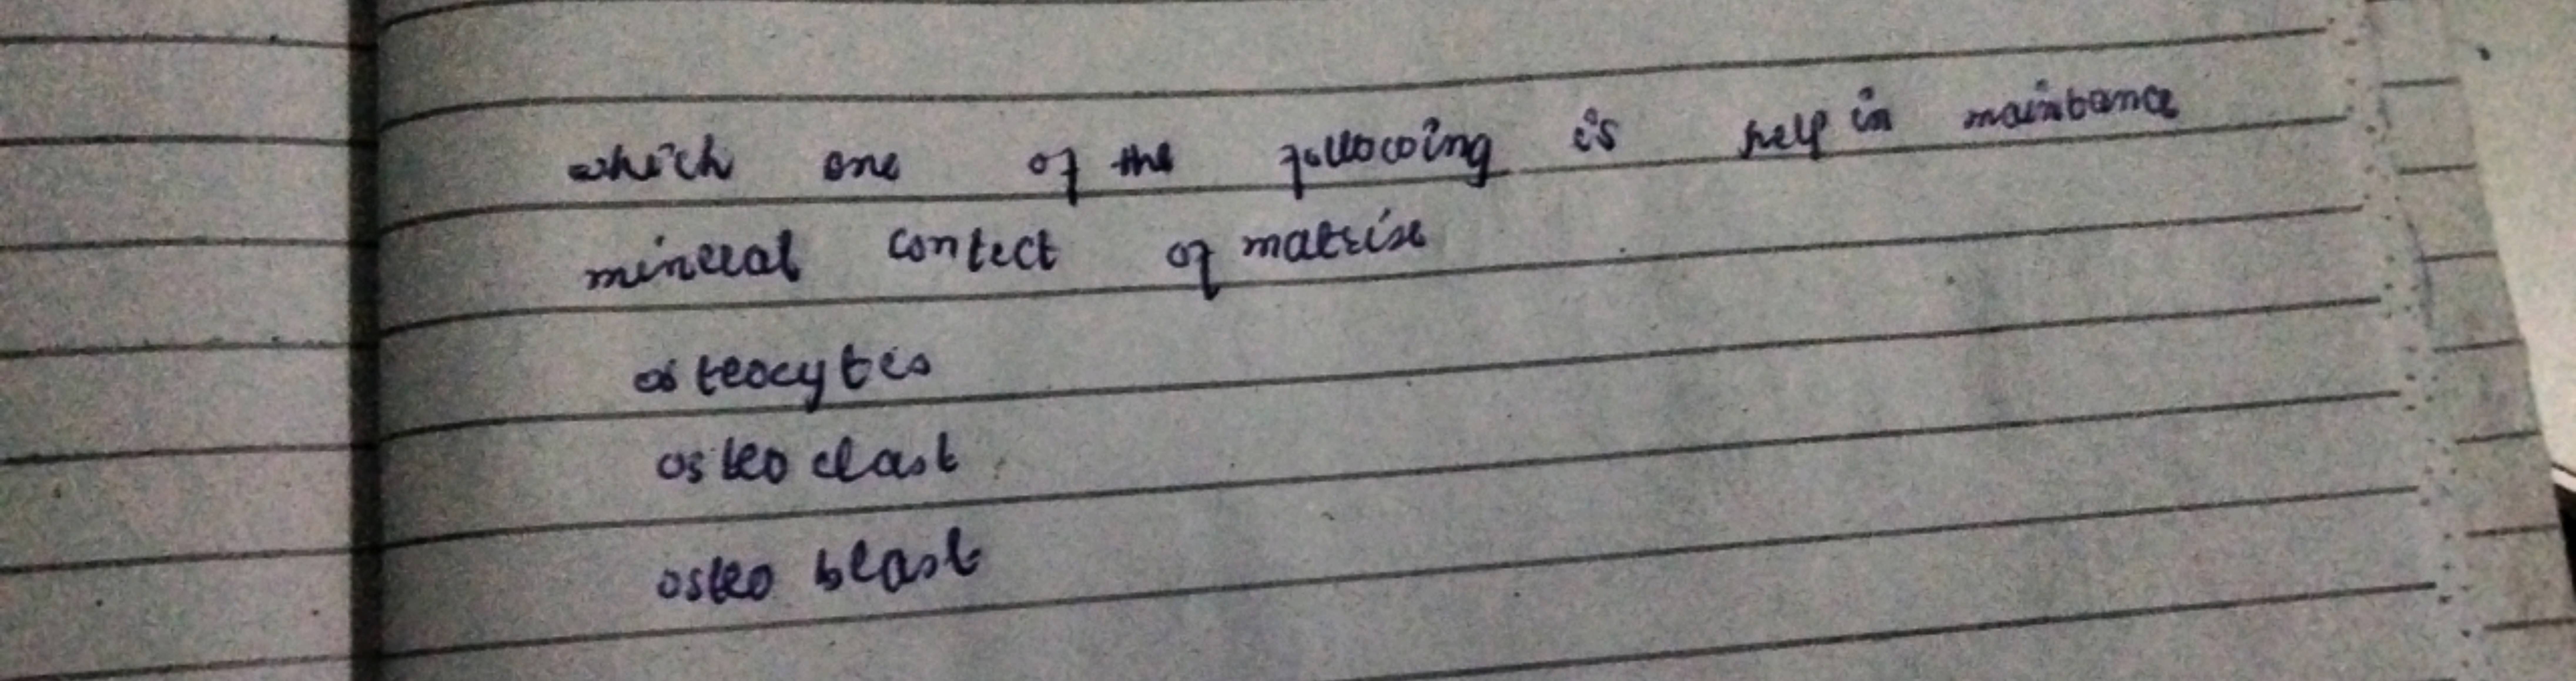 which one of the following is help in maintance
mineral contect of matrix
osteocytes
osteo clast
osteo blast